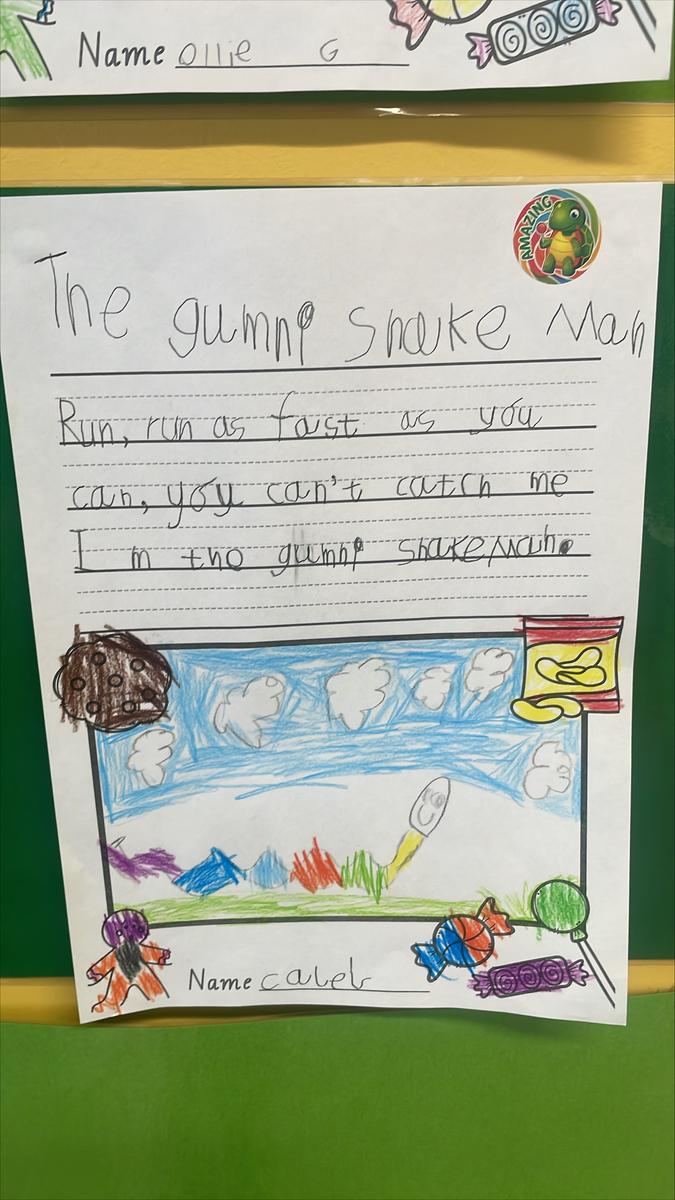 Name Ollie G
AMAZING
The gummi snake Man
Run, run as fast as you
can, you can't catch me
I m the gummi snake Man.
Name caleb